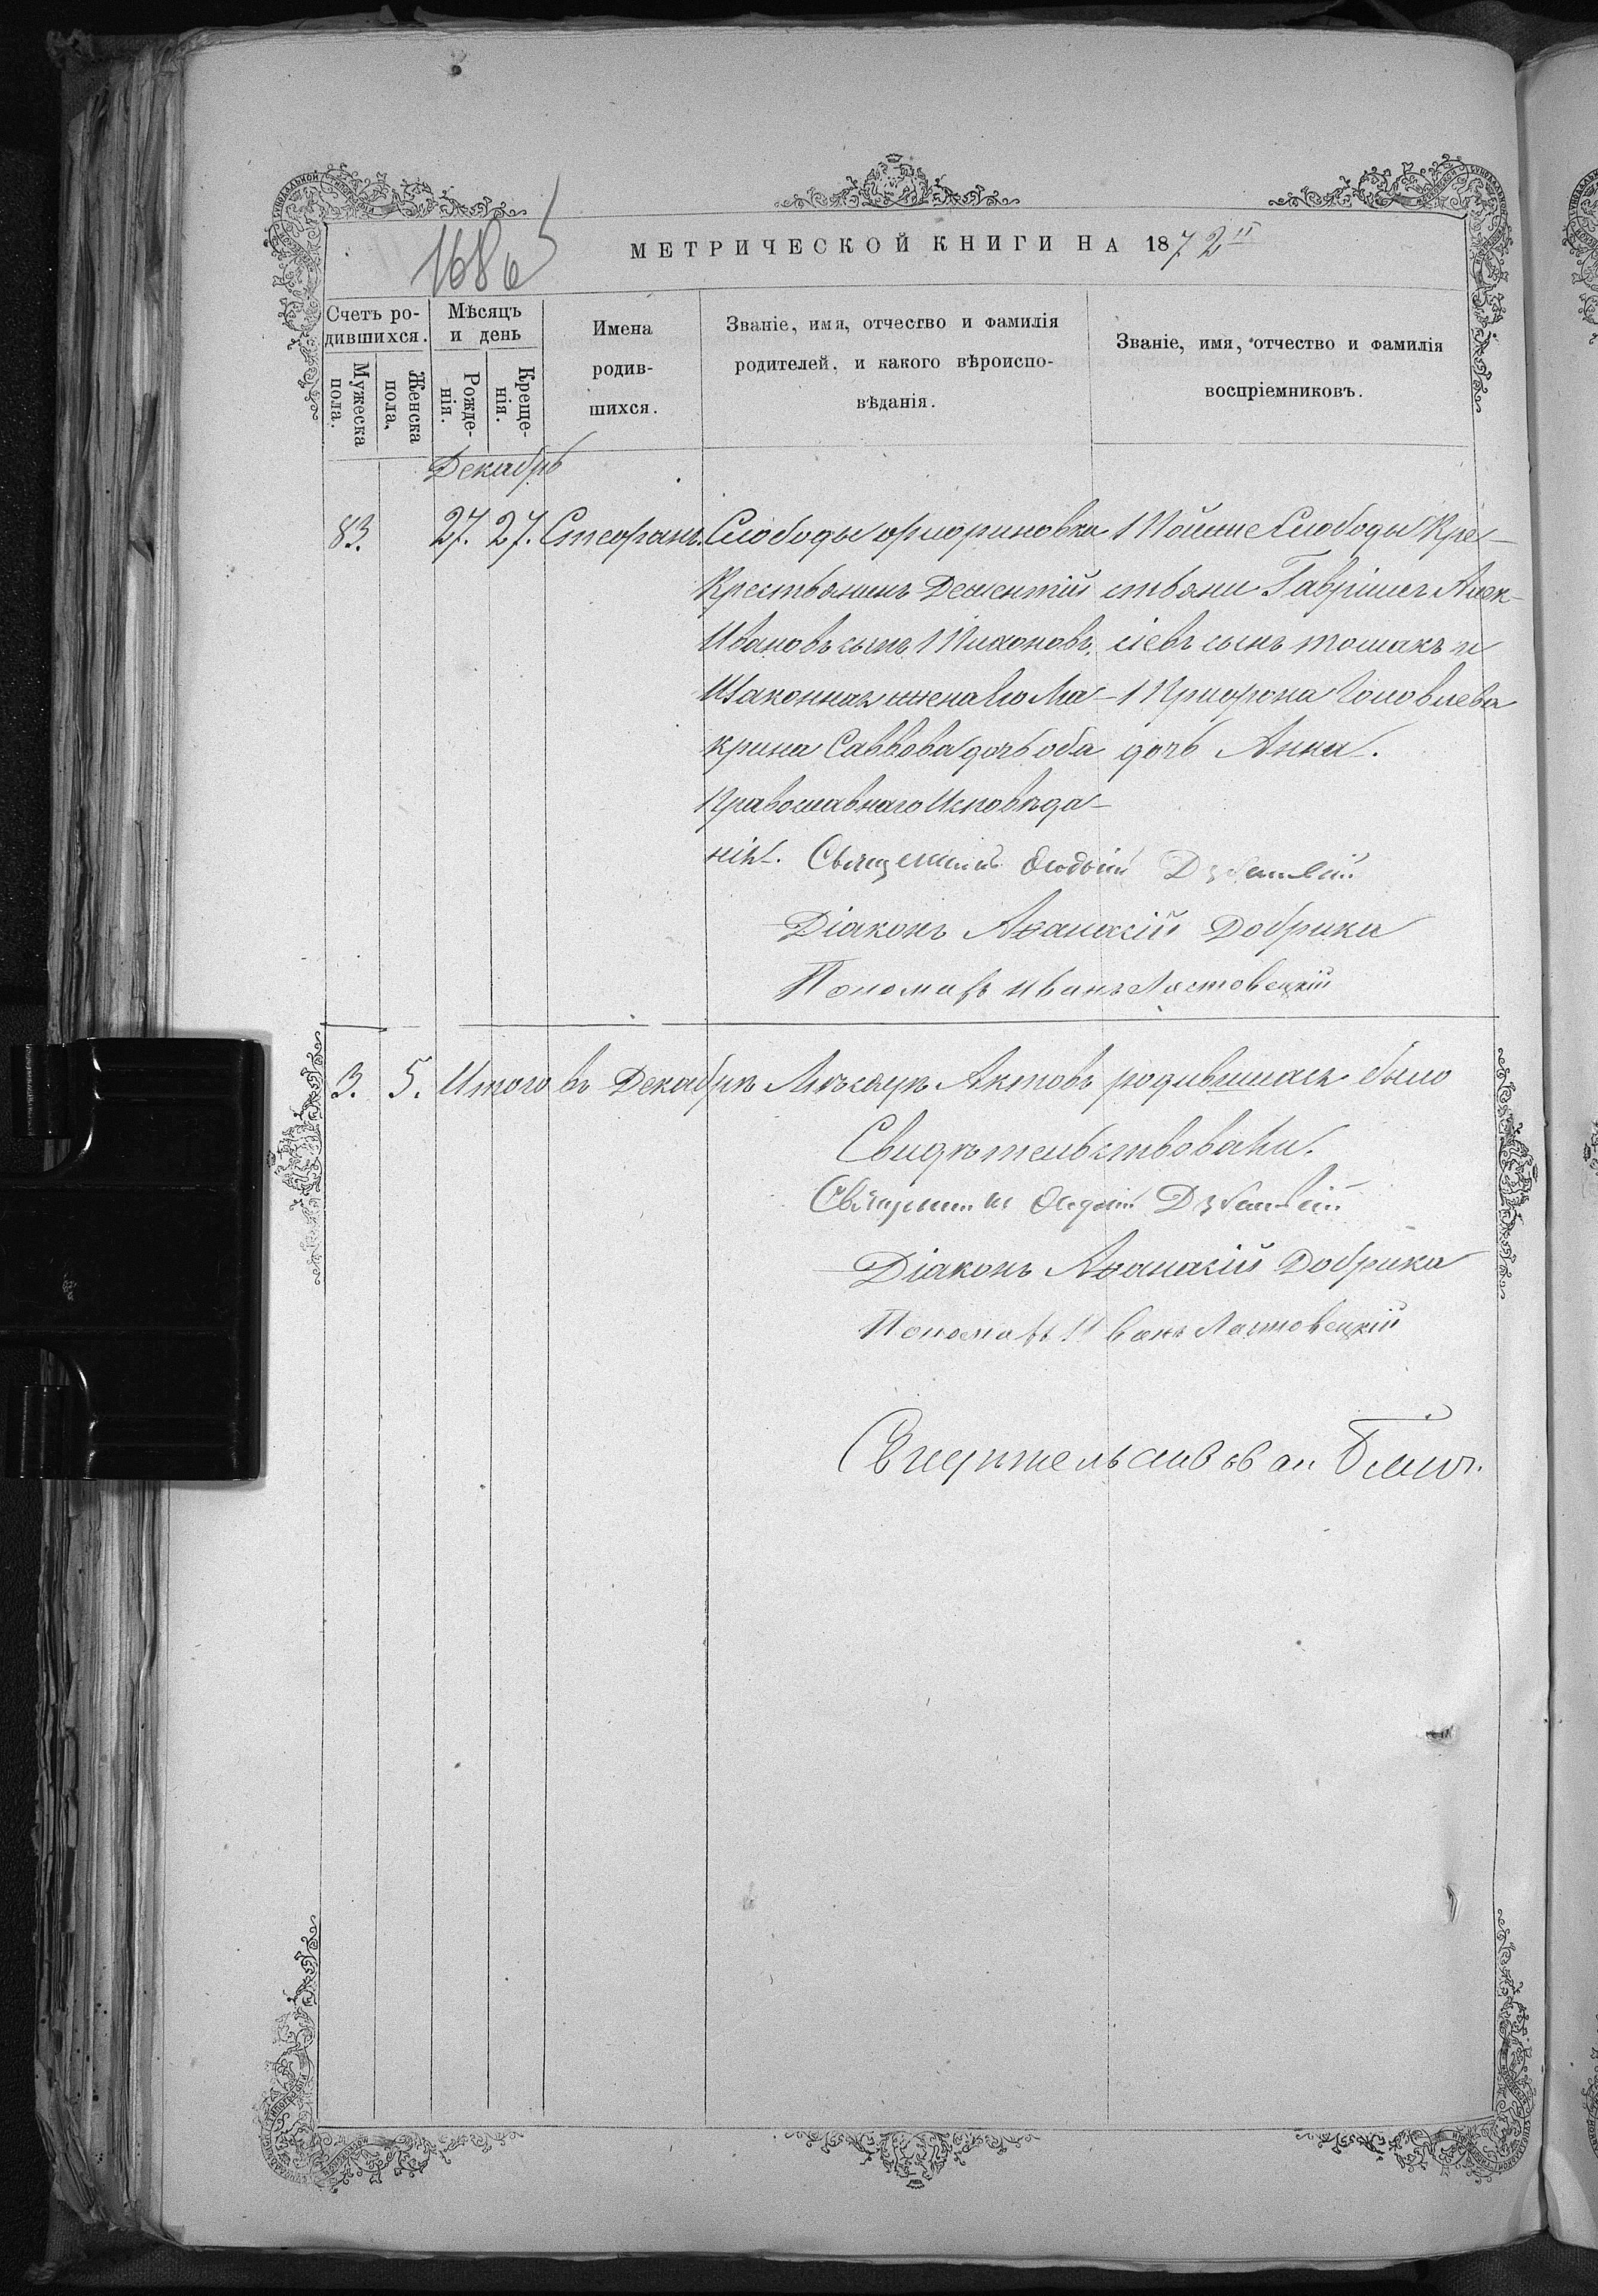 168 6 5
МЕТРИЧЕСКОЙ КНИГИ НА 1872
Счетъ ро-
дившихся.
Мужеска пола.
Женска пола,
Мѣсяцъ
и день
Рожде-
нія.
Креще-
нія.
Имена
родив-
шихся.
Званіе, имя, отчество и фамилія
родителей, и какого вѣроиспо-
вѣданія.
Званіе, имя, отчество и фамилія
воспріемниковъ.
Декабрь
83. 27. 27. Стефанъ.
Слободы
Крестьянинъ Дементій
Ивановъ сынъ Тихоновъ,
Изаконная жена его Ма-
крина Саввова дочь оба
Православнаго Исповѣда-
нія.
Тойже Слободы Кре-
стьяни Гавріилъ Алек-
сіевъ сынъ Томакъ и
Трифона Головлева
дочь Анна.
Священникъ
Діаконъ Аѳанасій Добрика
Пономарь Иванъ Ластовецкій
3. 5. Итого въ Декабрѣ Мѣсяцѣ Актовъ родившихся было
Свидѣтельствовали.
Священникъ
Діаконъ Аѳанасій Добрика
Пономарь Иванъ Ластовецкій